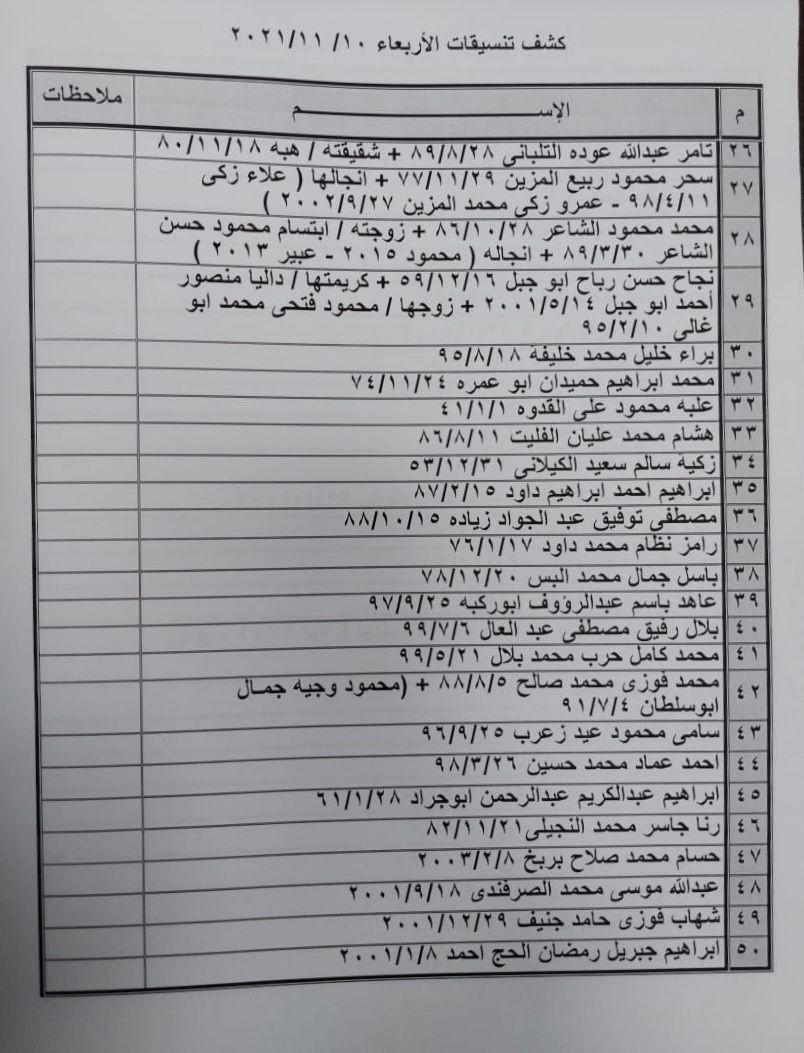 كشف تنسيقات الأربعاء ١٠/ ٢٠٢١/١١
م الإســـــــــم ملاحظات
٢٦ تامر عبدالله عوده التلبانى ٨٩/٨/٢٨ + شقيقته / هبه ٨٠/١١/١٨
٢٧ سحر محمود ربيع المزين ٧٧/١١/٢٩ + انجالها ( علاء زكى
٩٨/٤/١١ - عمرو زكى محمد المزين ٢٠٠٢/٩/٢٧ )
٢٨ محمد محمود الشاعر ٨٦/١٠/٢٨ + زوجته / ابتسام محمود حسن
الشاعر ٨٩/٣/٣٠ + انجاله ( محمود ٢٠١٥ - عبير ٢٠١٣ )
٢٩ نجاح حسن رباح ابو جبل ٥٩/١٢/١٦ + كريمتها / داليا منصور
أحمد ابو جبل ٢٠٠١/٥/١٤ + زوجها / محمود فتحى محمد ابو
غالى ٩٥/٢/١٠
٣٠ براء خليل محمد خليفة ٩٥/٨/١٨
٣١ محمد ابراهيم حميدان ابو عمره ٧٤/١١/٢٤
٣٢ علبه محمود على القدوه ٤١/١/١
٣٣ هشام محمد عليان الفليت ٨٦/٨/١١
٣٤ زكية سالم سعيد الكيلانى ٥٣/١٢/٣١
٣٥ ابراهيم احمد ابراهيم داود ٨٧/٢/١٥
٣٦ مصطفى توفيق عبد الجواد زياده ٨٨/١٠/١٥
٣٧ رامز نظام محمد داود ٧٦/١/١٧
٣٨ باسل جمال محمد البس ٧٨/١٢/٢٠
٣٩ عاهد باسم عبدالرؤوف ابوركبه ٩٧/٩/٢٥
٤٠ بلال رفيق مصطفى عبد العال ٩٩/٧/٦
٤١ محمد كامل حرب محمد بلال ٩٩/٥/٢١
٤٢ محمد فوزى محمد صالح ٨٨/٨/٥ + (محمود وجيه جمـال
ابوسلطان ٩١/٧/٤
٤٣ سامى محمود عيد زعرب ٩٦/٩/٢٥
٤٤ احمد عماد محمد حسين ٩٨/٣/٢٦
٤٥ ابراهيم عبدالكريم عبدالرحمن ابوجراد ٦١/١/٢٨
٤٦ رنا جاسر محمد النجيلى ٨٢/١١/٢١
٤٧ حسام محمد صلاح بربخ ٢٠٠٣/٢/٨
٤٨ عبدالله موسى محمد الصرفندى ٢٠٠١/٩/١٨
٤٩ شهاب فوزى حامد جنيف ٢٠٠١/١٢/٢٩
٥٠ ابراهيم جبريل رمضان الحج احمد ٢٠٠١/١/٨